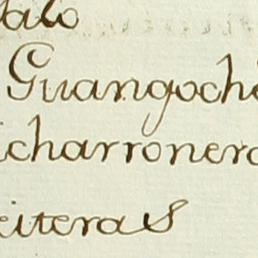 talo
Guangoche
icharronero
eiteras